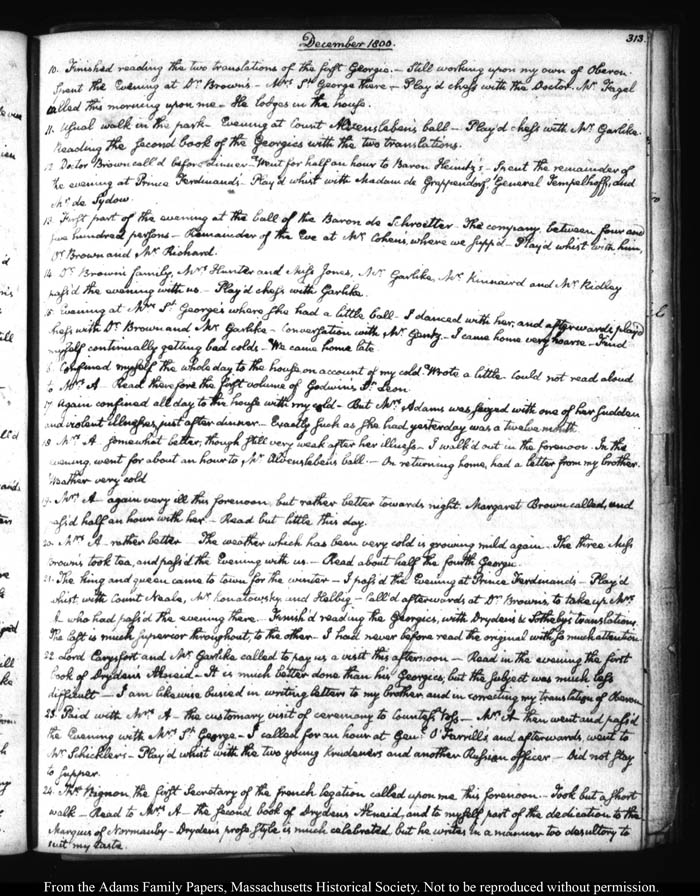 313
December 1800.
10. Finished reading the two translations of the first Georgic. – Still working upon my own of Oberon.
Spent the Evening at Dr Brown's – Mrs St George there – Play'd chess with the Doctor. Mr Fagel
called this morning upon me – He lodges in the house.
11. Usual walk in the park – Evening at Count Alvensleben's ball – Play'd chess with Mr Garlike.
Reading the second book of the Georgics with the two translations.
12. Doctor Brown call'd before dinner – Went for half an hour to Baron Heinitz's – Spent the remainder of
the evening at Prince Ferdinand's – Play'd whist with Madam de Grappendorf, General Tempelhoff, and
Mr de Sydow.
13. First part of the evening at the ball of the Baron de Schroetter – The company between four and
five hundred persons – Remainder of the Eve at Mr Cohen's, where we supp'd – Play'd whist with him,
Dr Brown and Mr Richard.
14. Dr Brown's family, Mrs Hunter and Miss Jones, Mr Garlike, Mr Kinnaird and Mr Ridley
pass'd the evening with us – Play'd chess with Garlike.
15. Evening at Mrs St George's where she had a little ball – I danced with her, and afterwards play'd
chess with Dr Brown and Mr Garlike – Conversation with Mr Gentz – I came home very hoarse – Find
myself continually getting bad colds – We came home late
16. Confined myself the whole day to the house, on account of my cold. Wrote a little – Could not read aloud
to Mrs A – Read therefore the first volume of Godwin's St Leon.
17. Again confined all day to the house with my cold – But Mrs Adams was seized with one of her sudden
and violent illnesses, just after dinner – Exactly such as she had yesterday was a twelve month.
18. Mrs A somewhat better, though still very weak after her illness – I walk'd out in the forenoon. In the
evening, went for about an hour to Mr Alvensleben's ball. – On returning home, had a letter from my brother.
Weather very cold
19. Mrs A – again very ill this forenoon, but rather better towards night. Margaret Brown called, and
pass'd half an hour with her – Read but little this day.
20. Mrs A rather better – The weather which has been very cold is growing mild again – The three Miss
Browns took tea, and pass'd the Evening with us – Read about half the fourth Georgic.
21. The King and queen came to town for the winter – I pass'd the Evening at Prince Ferdinand's – Play'd
whist, with Count Neale, Mr and Helbig – Call'd afterwards at Dr Brown's, to take up Mrs
A – who had pass'd the evening there – Finish'd reading the Georgics, with Dryden's & Sotheby's translations.
The last is much superior throughout, to the other – I had never before read the original with so much attention.
22. Lord Carysfort and Mr Garlike called to pay us a visit this afternoon – Read in the evening the first
book of Dryden's Aeneid – It is much better done than his Georgics, but the subject was much less
difficult – I am likewise busied in writing letters to my brother and in correcting my translation of Oberon
23. Paid with Mrs A – the customary visit of ceremony to Countess Voss – Mrs A then went and pass'd
the Evening with Mrs St George – I called for an hour at Genl O'Farrill's and afterwards, went to
Mr Schickler's – Play'd whist with the two young Krudeners and another Russian officer – Did not stay
to supper.
24. Mr Bignon the first Secretary of the french legation called upon me this forenoon – Took but a short
walk – Read to Mrs A – the second book of Dryden's Aeneid, and to myself part of the dedication to the
Marquis of Normanby – Dryden's prose style is much celebrated, but he writes in a manner too desultory to
suit my taste.
From the Adams Family Papers, Massachusetts Historical Society. Not to be reproduced without permission.